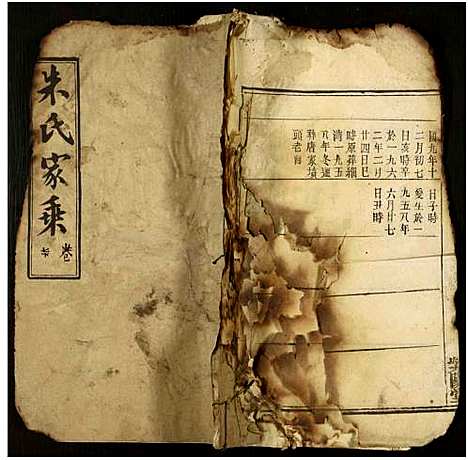 朱氏家乘
卷
日子時
變生於一
九五八年
六月廿七
日丑時
國九年十
二月初七
日亥時辛
於一九六
二年二月
廿四日巳
時原葬
湾一九五
年冬遷
葬唐家墳
頭老肖